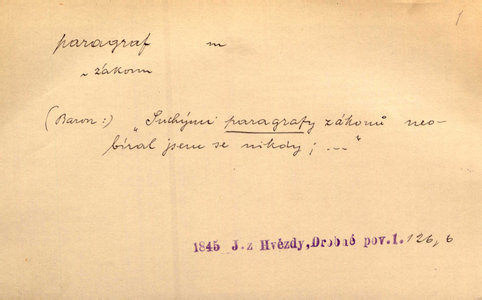 1
paragraf m
~ zákonu
(Baron:) „Suchými paragrafy zákonů neo-
bíral jsem se nikdy; ..."
1845 J. z Hvězdy, Drobné pov.I. 126, 6